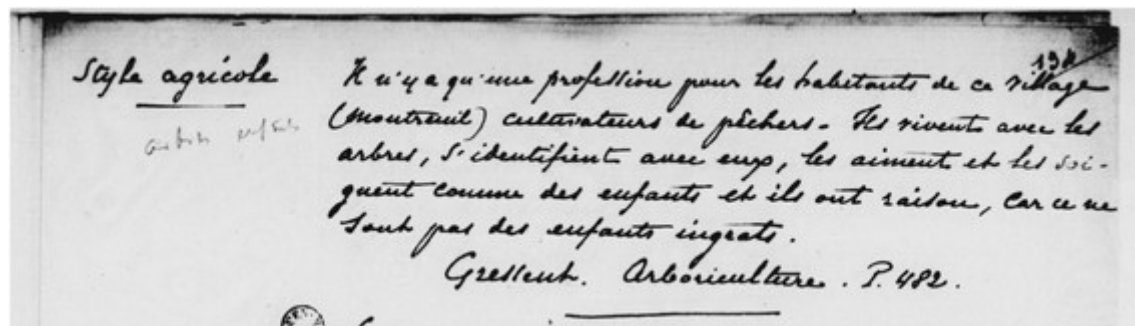 138
Style agricole
Il n'y a qu'une profession pour les habitants de ce village
(Montreuil) cultivateurs de pêchers. Ils vivent avec les
arbres, s'identifient avec eux, les aiment et les soi-
gnent comme des enfants et ils ont raison, car ce ne
sont pas des enfants ingrats.
Gressent. Arboriculture. P. 482.